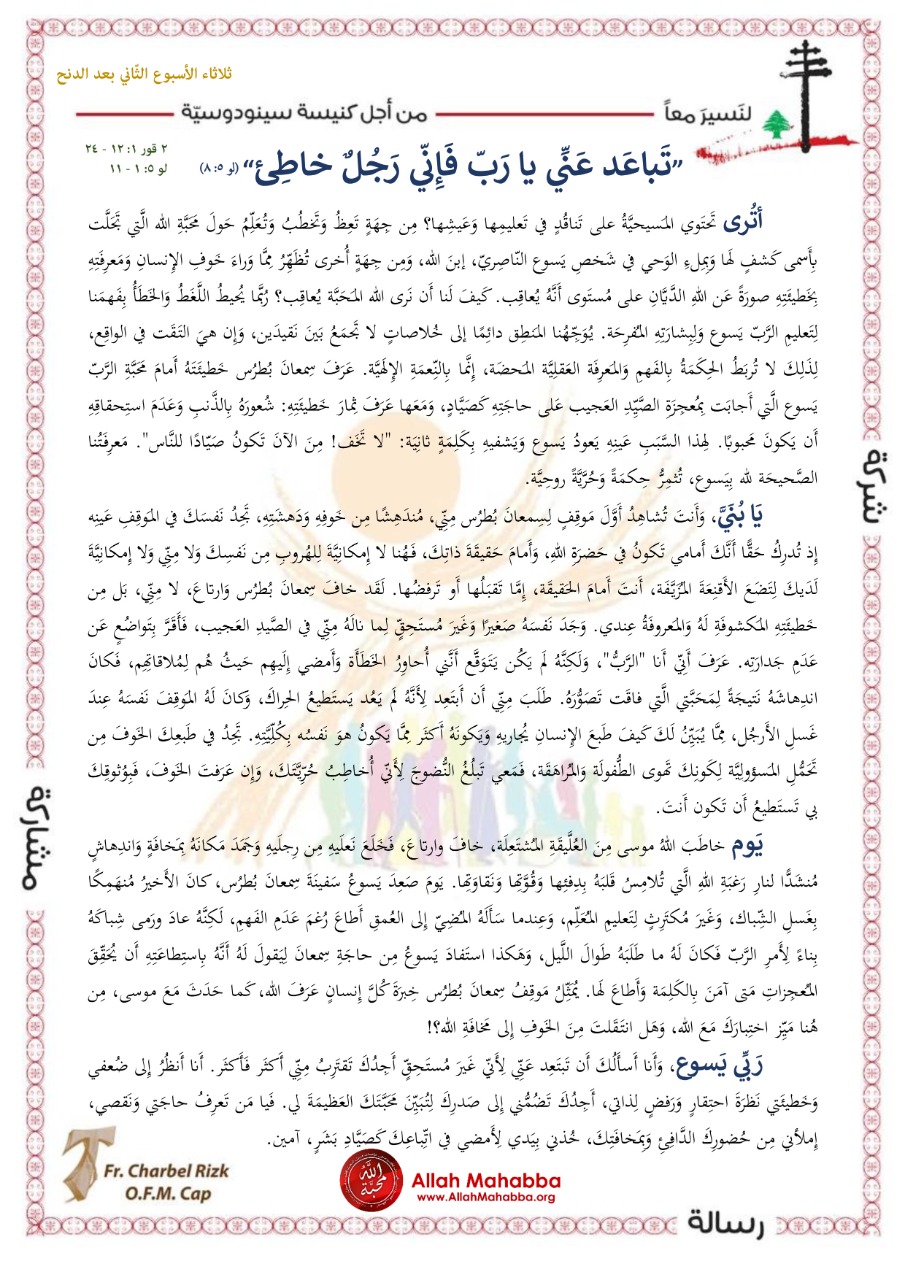 ثلاثاء الأسبوع الثّاني بعد الدنح
لنَسيرَ معاً
من أجل كنيسة سينودوسيّة
٢ قور ١: ١٢ - ٢٤
لو ٥: ١ - ١١
”تَباعَد عَنِّي يا رَبّ فَإنّي رَجُلٌ خاطِئ“ (لو ٥: ٨)
أتُرى تَحتَوي المَسيحيَّةُ على تَناقُدٍ في تَعليمِها وَعَيشِها؟ مِن جِهَةٍ تَعِظُ وَتَخطُبُ وَتُعلِّمُ حَولَ مَحَبَّةِ الله الَّتي تَجَلَّت
بِأَسمى كَشفٍ لها وَبِملءِ الوَحي في شَخصِ يَسوع النّاصريّ، إبنَ الله، وَمِن جِهَةٍ أُخرى تُظَهِّرُ مِمَّا وَراءَ خَوفِ الإنسانِ وَمَعرِفَتِهِ
بِخَطيئَتِهِ صورَةً عَن اللهِ الدَّيَّانِ على مُستَوى أَنَّهُ يُعاقِب. كَيفَ لَنا أن نَرى الله المَحَبَّة يُعاقِب؟ رُبَّما يُحيطُ اللَّغَطُ وَالخَطَأُ بِفَهمَنا
لِتَعليمِ الرَّبّ يَسوع وَلِبِشارَتِهِ المُفرِحَة. يُوَجِّهُنا المَنطِق دائمًا إلى خُلاصاتٍ لا تَجمَعُ بَينَ نَقيدَين، وَإن هيَ التَقَت في الواقِع،
لِذَلِكَ لا تُربَطُ الحِكمَةُ بالفَهمِ وَالمَعرِفَة العَقليَّة المَحضَة، إنَّما بِالنِّعمَةِ الإلَهيَّة. عَرَفَ سِمعانَ بُطرُس خَطيئَتَهُ أمامَ مَحَبَّةِ الرَّبّ
يَسوع الَّتي أجابَت بِمُعجِزَةِ الصَّيِّدِ العَجيب عَلى حاجَتِهِ كَصَيَّادٍ، وَمَعَها عَرَفَ ثِمارَ خَطيئَتِهِ: شعورَهُ بِالذَّنبِ وَعَدَمَ استِحقاقِهِ
أن يَكونَ مَحبوبًا. لِهذا السَّبَبِ عَينِهِ يَعودُ يَسوع وَيَشفيهِ بِكَلِمَةٍ ثانِيَة: "لا تَخَف! مِنَ الآنَ تَكونُ صَيَّادًا للنَّاس". مَعرِفَتُنا
الصَّحيحَة لله بِيَسوع، تُثمِرُ حِكمَةً وَحُرِّيَّةً روحِيَّة.
يَا بُنَيَّ، وَأنتَ تُشاهِدُ أوَّلَ مَوقِفٍ لِسِمعانَ بُطرُس مِنّي، مُندَهِشًا مِن خَوفِهِ وَدَهشَتِهِ، تَجِدُ نَفسَكَ في المَوقِفِ عَينه
إذ تُدرِكُ حَقًّا أنَّكَ أمامي تَكونُ في حَضرَةِ اللهِ، وَأمامَ حَقيقَةَ ذاتِكَ، فَهُنا لا إمكانِيَّةَ لِلهُروبِ مِن نَفسِكَ وَلا مِنّي وَلا إمكانيَّةَ
لَدَيكَ لِتَضَعَ الأقنِعَةَ المُزَيَّفَة، أنتَ أمامَ الحَقيقَة، إمَّا تَقبَلُها أو تَرفضُها. لَقَد خافَ سِمعانَ بُطرُس وَارتاعَ، لا مِنّي، بَل مِن
خَطيئَتِهِ المَكشوفَةِ لَهُ وَالمَعروفَةُ عِندي. وَجَدَ نَفسَهُ صَغيرًا وَغَيرَ مُستَحِقٍّ لِما نالَهُ مِنّي في الصَّيدِ العَجيب، فَأقَرَّ بِتَواضُعٍ عَن
عَدَمِ جَدارَتِهِ. عَرَفَ أنّي أنا "الرَّبُّ"، وَلَكِنَّهُ لَم يَكُن يَتَوَقَّع أنَّني أُحاوِرُ الخَطَأَة وَأمضي إلَيهِم حَيثُ هُم لِمُلاقاتِهِم، فَكانَ
اندِهاشَهُ نَتيجَةً لِمَحَبَّتي الَّتي فاقَت تَصَوُّرَهُ. طَلَبَ مِنّي أن أبتَعِد لِأنَّهُ لَم يَعُد يَستَطيعُ الحِراكَ، وَكانَ لَهُ المَوقِف نَفسَهُ عِندَ
غَسلِ الأرجُل، مِمَّا يُبَيِّنُ لَكَ كَيفَ طَبعَ الإنسانِ يُجاريهِ وَيَكونَهُ أكثَر مِمَّا يَكونُ هوَ نَفسُه بِكُلِّيَّتِهِ. تَجِدُ في طَبعِكَ الخَوفَ مِن
تَحَمُّلِ المَسؤوليَّة لِكَونِكَ تَهوى الطُّفولَة وَالمُراهَقَة، فَمَعي تَبلُغُ النُّضوجَ لِأنّي أُخاطِبُ حُرِّيَّتَكَ، وَإن عَرَفتَ الخَوفَ، فَبِوُثوقِكَ
بي تَستَطيعُ أن تَكون أنتَ.
يَوم خاطَبَ اللهُ موسى مِنَ العُلَّيقَةِ المُشتَعِلَة، خافَ وارتاعَ، فَخَلَعَ نَعلَيهِ مِن رِجلَيهِ وَجَمَدَ مَكانَهُ بِمَخافَةٍ وَاندِهاشٍ
مُنشَدًّا لنارِ رَغبَةِ اللهِ الَّتي تُلامِسُ قَلبَهُ بِدِفئِها وَقُوَّتِها وَنَقاوَتِها. يَومَ صَعِدَ يَسوعُ سَفينَةَ سِمعانَ بُطرُس، كانَ الأخيرُ مُنهَمِكًا
بِغَسلِ الشِّباك، وَغَيرَ مُكتَرِثٍ لِتَعليمِ المُعَلِّم، وَعِندما سَألَهُ المُضِيّ إلى العُمقِ أطاعَ رُغمَ عَدَمِ الفَهم، لَكِنَّهُ عادَ ورَمى شِباكَهُ
بِناءً لِأمرِ الرَّبّ فَكانَ لَهُ ما طَلَبَهُ طَوالَ اللَّيل، وَهَكذا استَفادَ يَسوعُ مِن حاجَةِ سِمعان لِيَقولَ لَهُ أنَّهُ بِاستِطاعَتِهِ أن يُحَقِّقَ
المُعجِزاتِ مَتى آمَنَ بِالكَلِمَة وَأطاعَ لَها. يُمَثِّلُ مَوقِفُ سِمعانَ بُطرُس خِبرَةَ كُلَّ إنسانٍ عَرَفَ الله، كَما حَدَثَ مَعَ موسى، مِن
هُنا مَيِّز اختِبارَكَ مَعَ الله، وَهَل انتَقَلتَ مِنَ الخَوفِ إلى مَخافَةِ الله؟!
رَبِّي يَسوع، وَأنا أسألُكَ أن تَبتَعِد عَنّي لِأنّي غَيرَ مُستَحِقٍّ أجِدُكَ تَقتَرِبُ مِنّي أكثَر فَأكثَر. أنا أنظُرُ إلى ضُعفي
وَخَطيئَتي نَظرَةَ احتِقارٍ وَرَفضٍ لِذاتي، أجِدُكَ تَضُمُّني إلى صَدرِكَ لِتُبَيِّنَ مَحَبَّتَكَ العَظيمَةَ لي. فَيا مَن تَعرِفُ حاجَتي وَنَقصي،
إملأني مِن حُضورِكَ الدَّافِئِ وَبِمَخافَتِكَ، خُذني بِيَدي لِأمضي في اتِّباعِكَ كَصَيَّادِ بَشَرٍ، آمين.
شركة
مشاركة
رسالة
Fr. Charbel Rizk
O.F.M. Cap
الله محبّة
Allah Mahabba
www.AllahMahabba.org